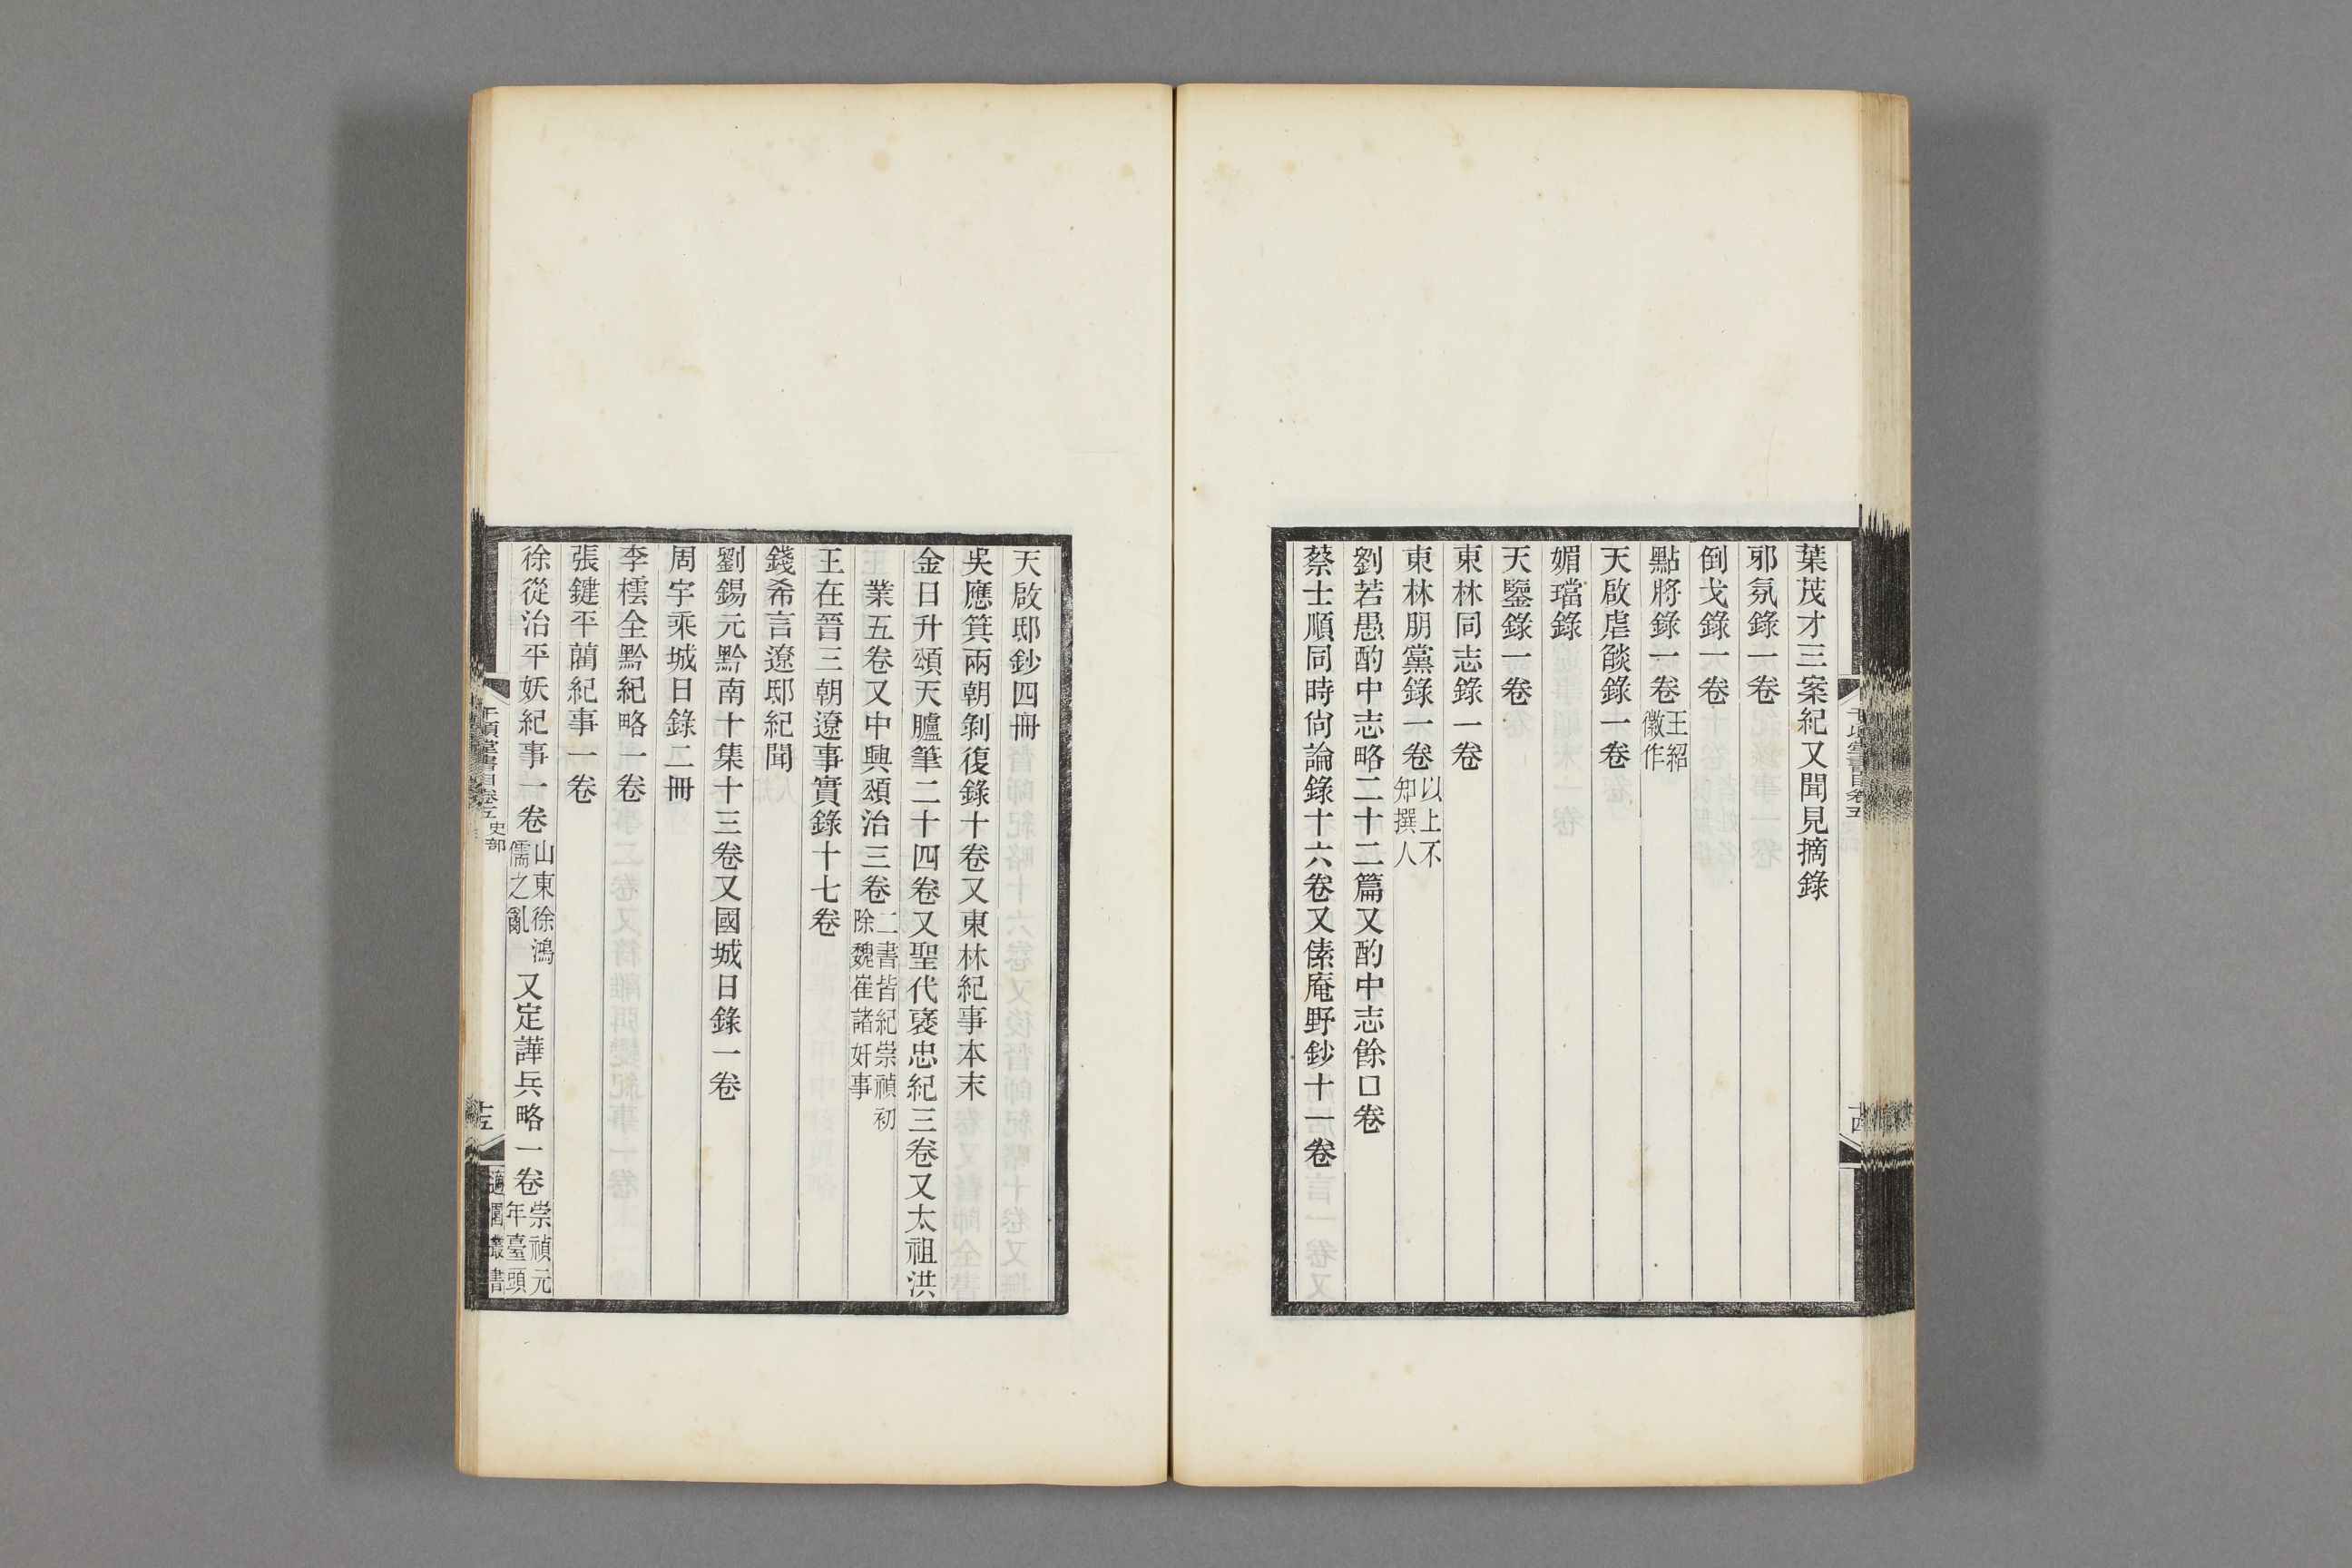 葉茂才三案紀又聞見摘錄
邪氛錄一卷
倒戈錄一卷
點將錄一卷王紹徽作
天啟虐燄錄一卷
媚璫錄
天鑒錄一卷
東林同志錄一卷
東林朋黨錄一卷以上不知撰人
劉若愚酌中志略二十二篇又酌中志餘口卷
蔡士順同時尙論錄十六卷又傃庵野鈔十一卷
天啟邸鈔四冊
吳應箕兩朝剝復錄十卷又東林紀事本末
金日升頌天臚筆二十四卷又聖代襃忠紀三卷又太祖洪
業五卷又中興頌治三卷二書皆紀崇禎初除魏崔諸奸事
王在晉三朝遼事實錄十七卷
錢希言遼邸紀聞
劉錫元黔南十集十三卷又國城日錄一卷
周宇乘城日錄二冊
李橒全黔紀略一卷
張鍵平藺紀事一卷
徐從治平妖紀事一卷山東徐鴻儒之亂又定譁兵略一卷崇禎元年臺頭
千頃堂書目卷五 史部
十五
適園叢書